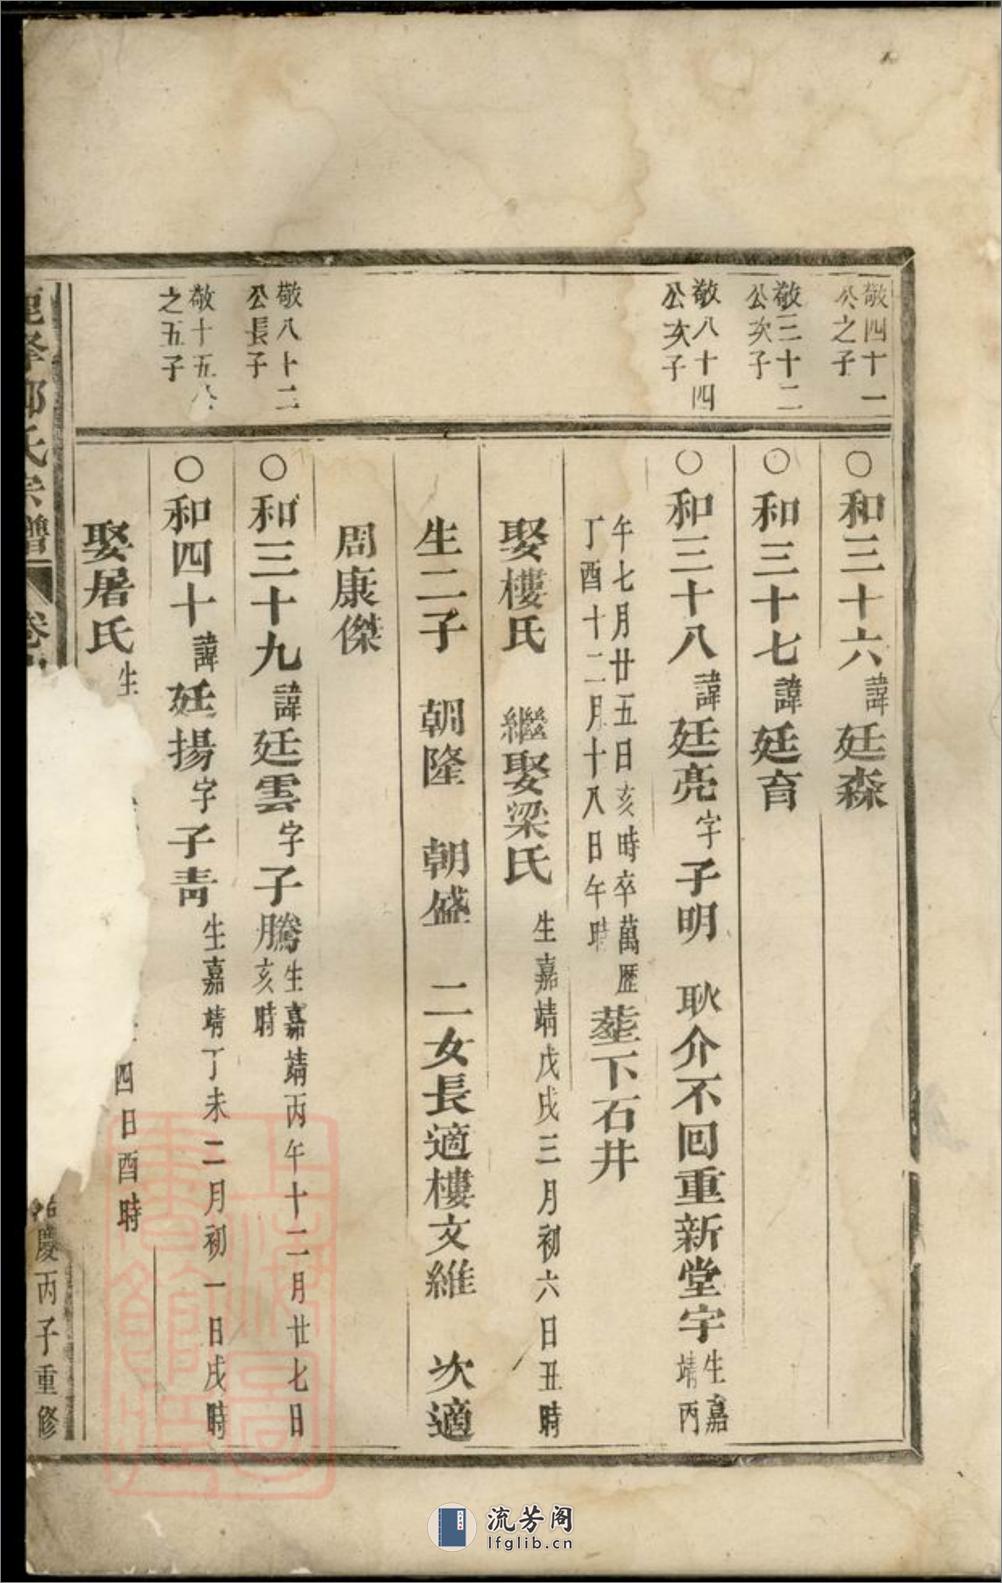 敬四十一
公之子
○和三十六諱廷森
敬三十二
公次子
○和三十七諱廷育
敬八十四
公次子
○和三十八諱廷亮字子明 耿介不回重新堂宇生嘉
靖丙
午七月廿五日亥時卒萬歷
丁酉十二月十八日午時
塟下石井
娶樓氏 繼娶梁氏生嘉靖戊戌三月初六日丑時
生二子 朝隆 朝盛 二女長適樓文維 次適
周康傑
敬八十二
公長子
○和三十九諱廷雲字子騰生嘉靖丙午十二月廿七日
亥時
敬十五公
之五子
○和四十諱廷揚字子青生嘉靖丁未二月初一日戌時
娶屠氏生
四日酉時
氏宗譜
卷
慶丙子重修
上海圖書館藏
流芳阁
lfglib.cn